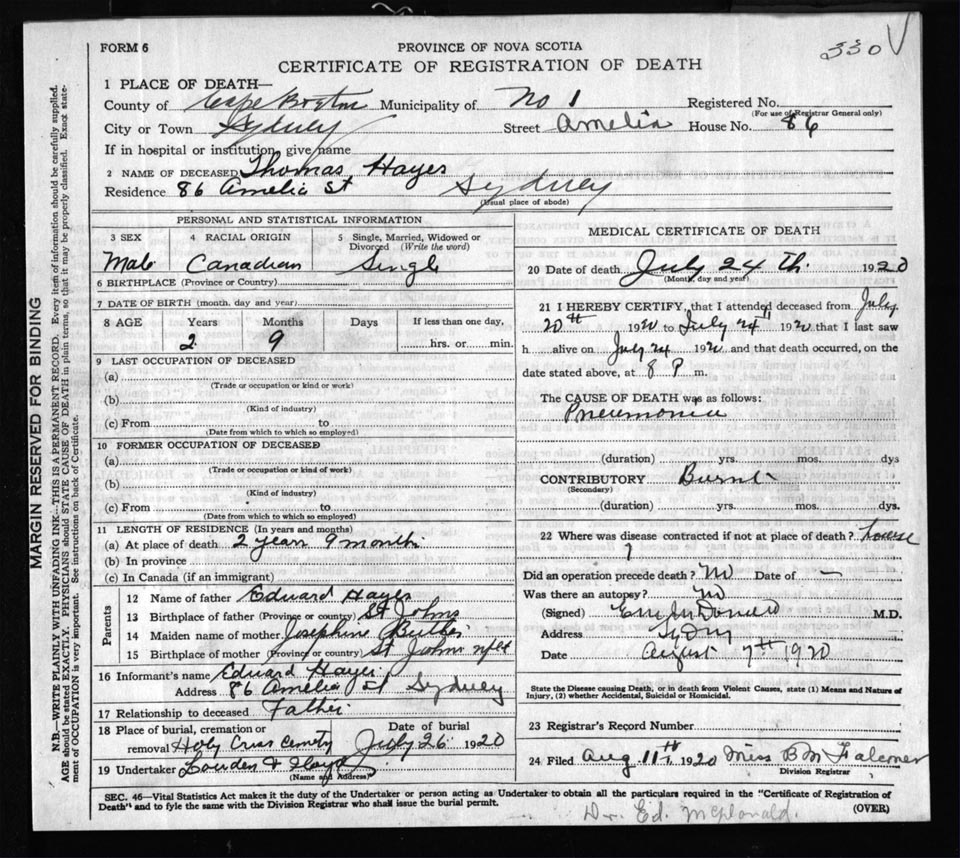 330 V
FORM 6
PROVINCE OF NOVA SCOTIA
CERTIFICATE OF REGISTRATION OF DEATH
1 PLACE OF DEATH—
County of Cape Breton Municipality of No 1 Registered No.
(For use of Registrar General only)
City or Town Sydney Street Amelia House No. 86
If in hospital or institution, give name
2 NAME OF DECEASED Thomas Hayes
Residence 86 Amelia St Sydney
(Usual place of abode)
PERSONAL AND STATISTICAL INFORMATION
3 SEX 4 RACIAL ORIGIN 5 Single, Married, Widowed or
Divorced (Write the word)
Male Canadian Single
6 BIRTHPLACE (Province or Country)
7 DATE OF BIRTH (month, day and year)
8 AGE Years Months Days If less than one day,
2 9 hrs. or min.
9 LAST OCCUPATION OF DECEASED
(a)
(Trade or occupation or kind or work)
(b)
(Kind of industry)
(c) From to
(Date from which to which so employed)
10 FORMER OCCUPATION OF DECEASED
(a)
(Trade or occupation or kind of work)
(b)
(Kind of industry)
(c) From to
(Date from which to which so employed)
11 LENGTH OF RESIDENCE (In years and months)
(a) At place of death 2 years 9 months
(b) In province
(c) In Canada (if an immigrant)
Parents
12 Name of father Edward Hayes
13 Birthplace of father (Province or country) St Johns
14 Maiden name of mother Josephine Butler
15 Birthplace of mother (Province or country) St Johns nfld
16 Informant's name Edward Hayes
Address 86 Amelia St Sydney
17 Relationship to deceased Father
18 Place of burial, cremation or Date of burial
removal Holy Cross Cemetry July 26 1920
19 Undertaker Louden & Floyd
(Name and Address)
MEDICAL CERTIFICATE OF DEATH
20 Date of death July 24 th. 1920
(Month, day and year)
21 I HEREBY CERTIFY, that I attended deceased from July
20th 1920 to July 24" 1920 that I last saw
h alive on July 24 1920 and that death occurred, on the
date stated above, at 8 P m.
The CAUSE OF DEATH was as follows:
Pneumonia
(duration) yrs. mos. dys
CONTRIBUTORY Burns
(Secondary)
(duration) yrs. mos. dys.
22 Where was disease contracted if not at place of death? house
?
Did an operation precede death? No Date of —
Was there an autopsy? No
(Signed) McDonald M.D.
Address Sydney
Date August 7th 1920
State the Disease causing Death, or in death from Violent Causes, state (1) Means and Nature of
Injury, (2) whether Accidental, Suicidal or Homicidal.
23 Registrar's Record Number
24 Filed Aug 11th 1920 Miss B M Falconer
Division Registrar
SEC. 46—Vital Statistics Act makes it the duty of the Undertaker or person acting as Undertaker to obtain all the particulars required in the "Certificate of Registration of
Death" and to fyle the same with the Division Registrar who shall issue the burial permit.
(OVER)
Dr. Ed. McDonald.
MARGIN RESERVED FOR BINDING
N.B.—WRITE PLAINLY WITH UNFADING INK—THIS IS A PERMANENT RECORD. Every item of information should be carefully supplied.
AGE should be stated EXACTLY. PHYSICIANS should STATE CAUSE OF DEATH in plain terms, so that it may be properly classified. Exact state-
ment of OCCUPATION is very important. See instructions on back of Certificate.